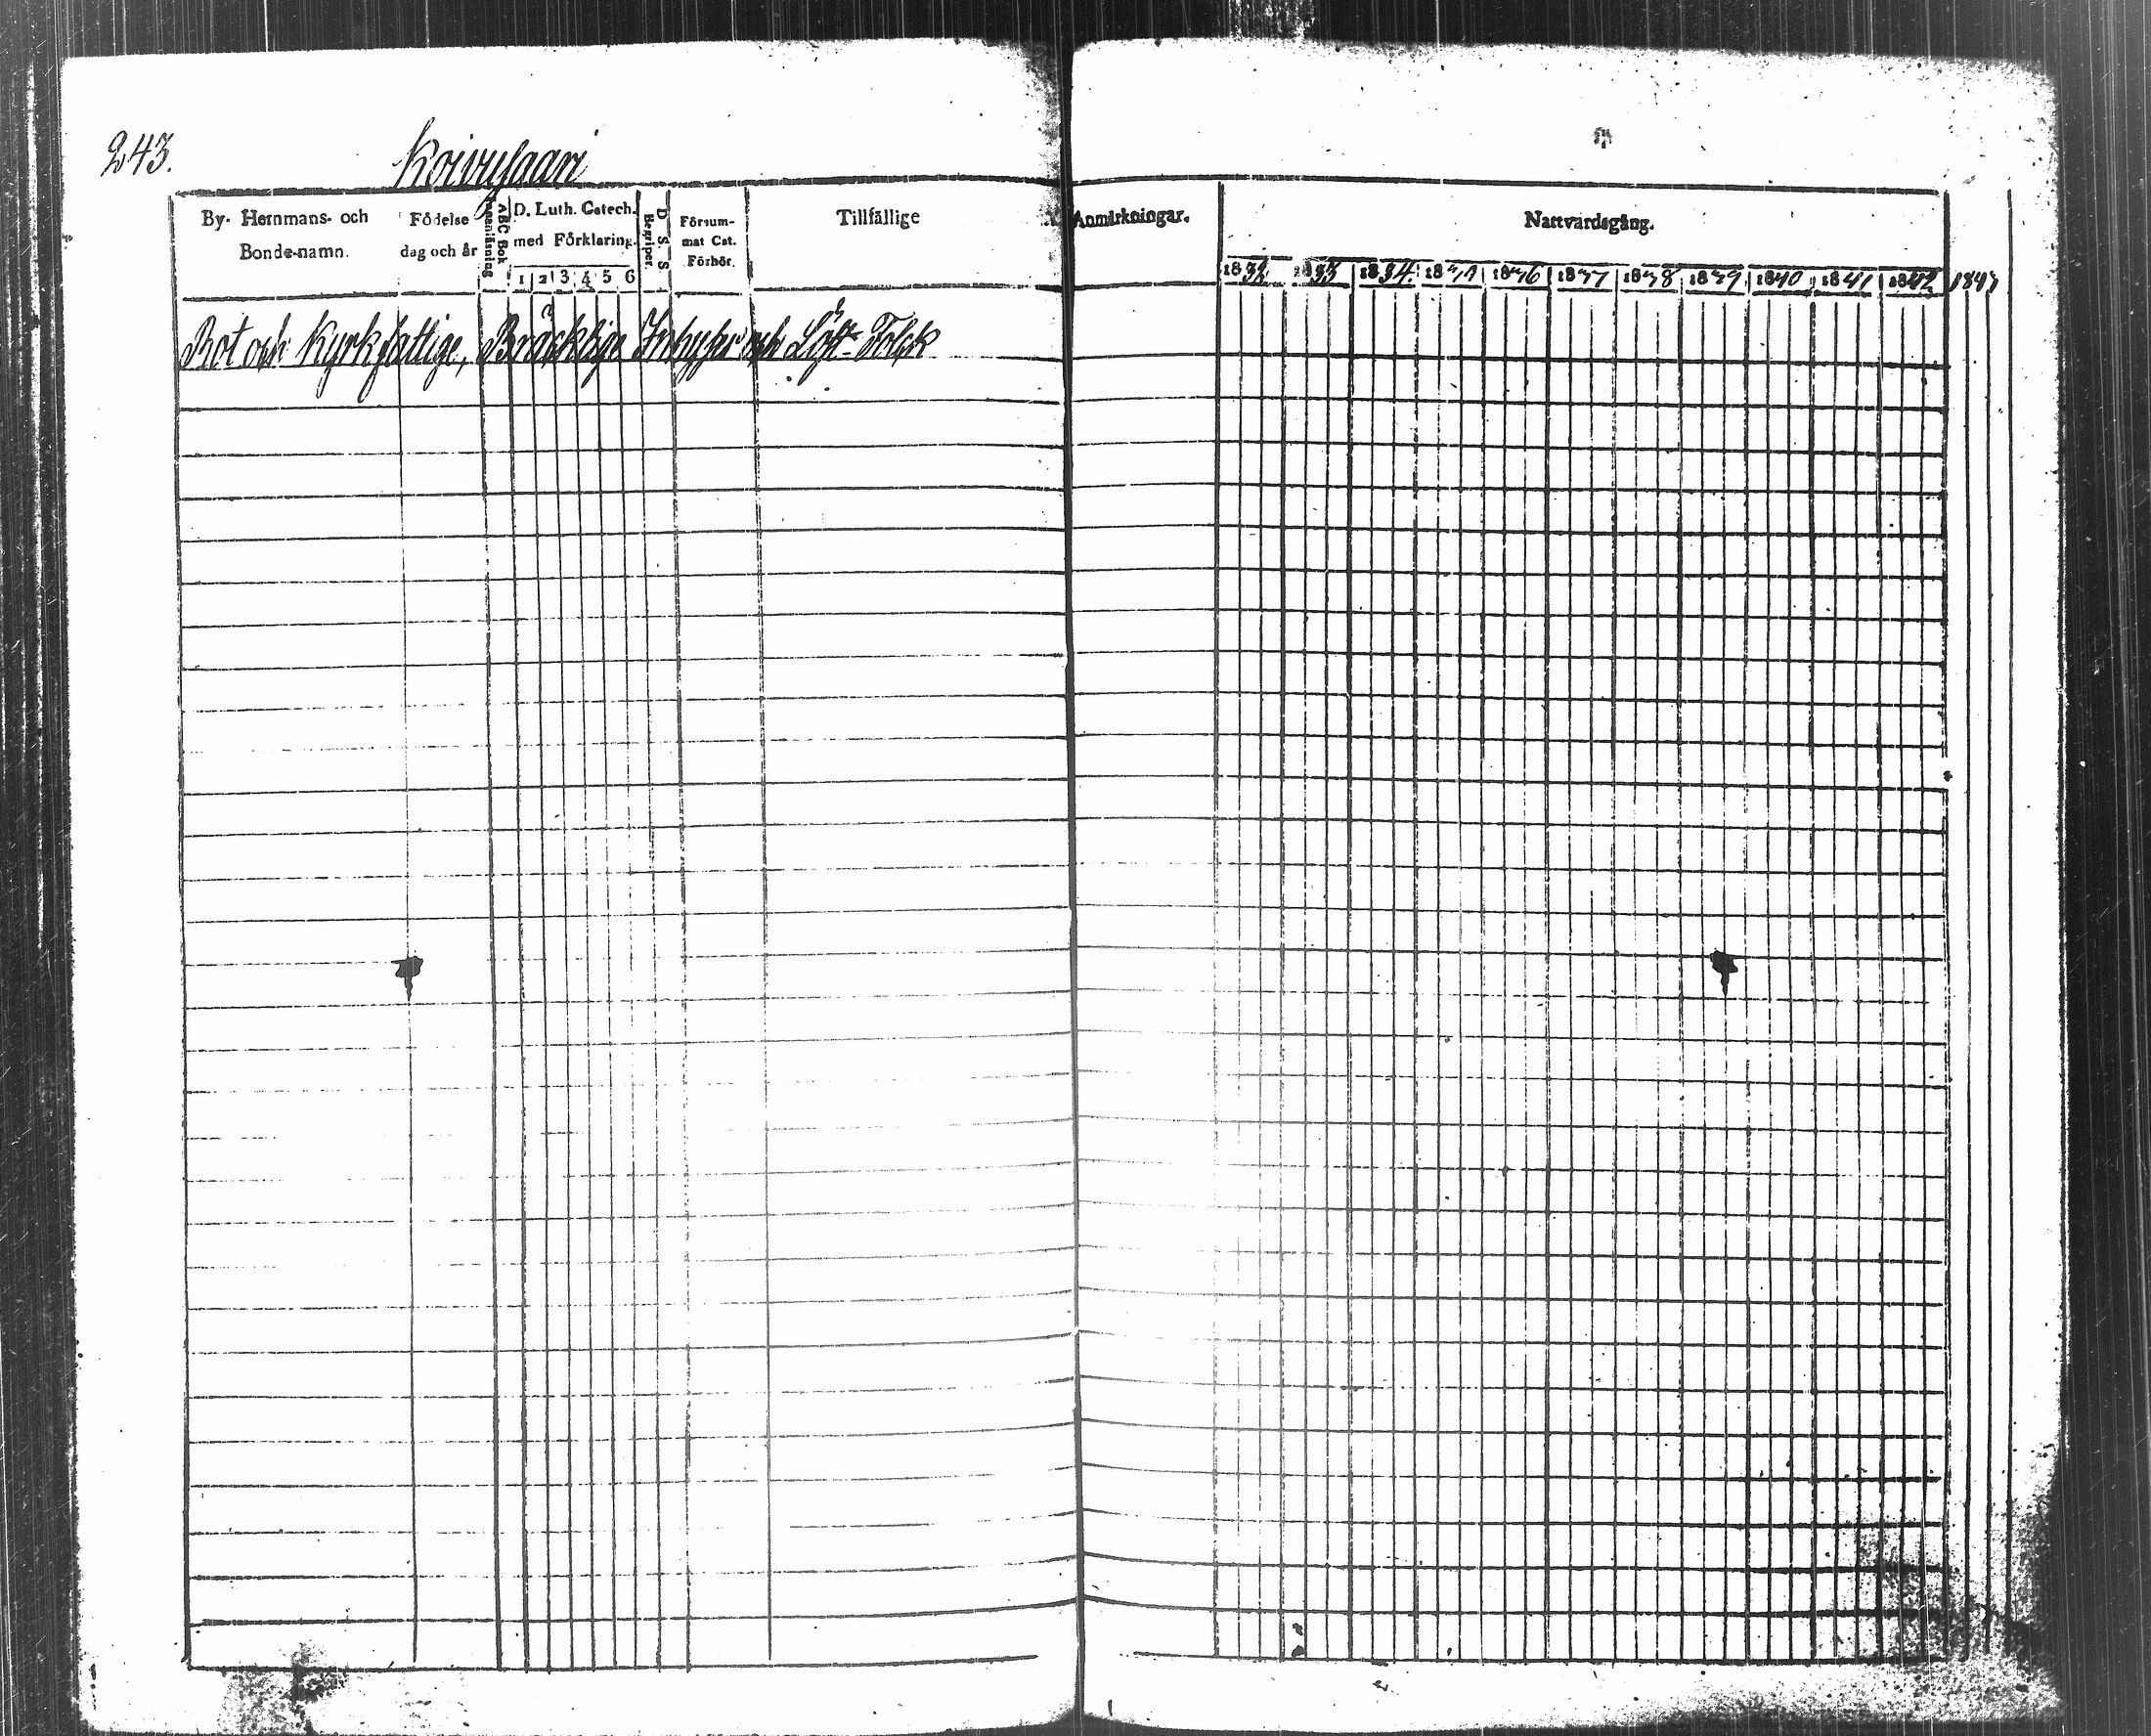 243.
Koivusaari
By- Hemmans- och Bonde-namn.
Födelse dag och år
Innanläsning
ABC Bok
D. Luth. Catech. med Förklaring.
1 2 3 4 5 6
D. S. S. Begriper.
Försummat Cat. Förhör.
Tillfällige
Anmärkningar.
Nattvardsgång.
1832 1833 1834 1835 1836 1837 1838 1839 1840 1841 1842 1843
Rot och Kyrkfattige, Bräcklige Inhyses och Löst-Folck